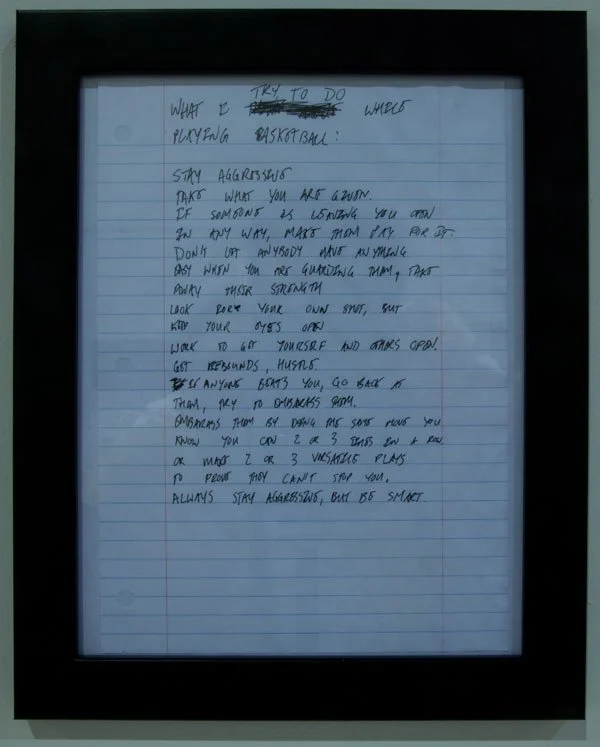 TRY TO DO
WHAT I WHILE
PLAYING BASKETBALL:
STAY AGGRESSIVE
TAKE WHAT YOU ARE GIVEN.
IF SOMEONE IS LEAVING YOU OPEN
IN ANY WAY, MAKE THEM PAY FOR IT.
DON'T LET ANYBODY HAVE ANYTHING
EASY WHEN YOU ARE GUARDING THEM, TAKE
AWAY THEIR STRENGTH
LOOK FOR YOUR OWN SHOT, BUT
KEEP YOUR EYES OPEN
WORK TO GET YOURSELF AND OTHERS OPEN.
GET REBOUNDS, HUSTLE.
IF ANYONE BEATS YOU, GO BACK AT
THEM, TRY TO EMBARASS THEM.
EMBARASS THEM BY DOING THE SAME MOVE YOU
KNOW YOU CAN 2 OR 3 TIMES IN A ROW
OR MAKE 2 OR 3 VERSATILE PLAYS
TO PROVE THEY CAN'T STOP YOU.
ALWAYS STAY AGGRESSIVE, BUT BE SMART.